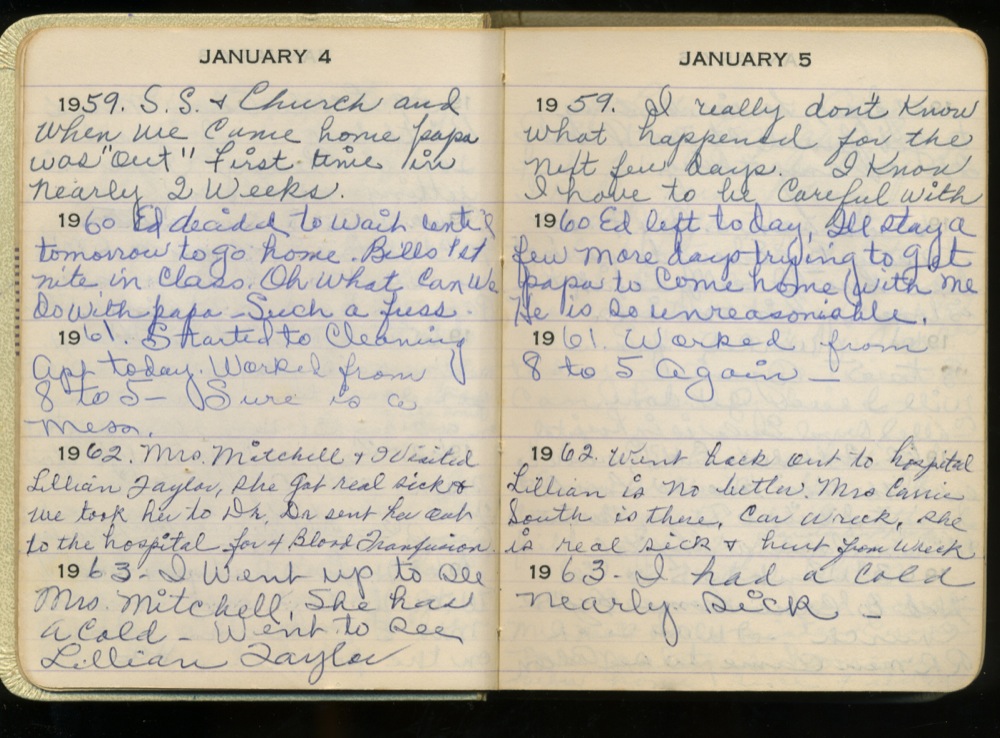 JANUARY 4
1959. S.S. & Church and
when we came home papa
was "out" first time in
nearly 2 weeks.
1960 Ed decided to wait until
tomorrow to go home. Bills 1st
nite in Class. Oh what can we
do with papa - Such a fuss.
1961. Started to Cleaning
App today. Worked from
8 to 5 - Sure is a
mess.
1962. Mrs. Mitchell & I visited
Lillian Taylor, she got real sick &
we took her to Dr. Dr sent her out
to the hospital for 4 Blood Tranfusion.
1963 - I went up to see
Mrs. Mitchell, She has
a cold - went to see
Lillian Taylor
JANUARY 5
1959. I really don't know
what happened for the
next few days. I know
I have to be careful with
1960 Ed left today, Ill stay a
few more days trying to get
papa to come home with me
He is so unreasoniable.
1961. Worked from
8 to 5 again -
1962. Went back out to hospital
Lillian is no better. Mrs Carrie
South is there, Car wreck, she
is real sick & hurt from wreck
1963 - I had a cold
nearly sick -